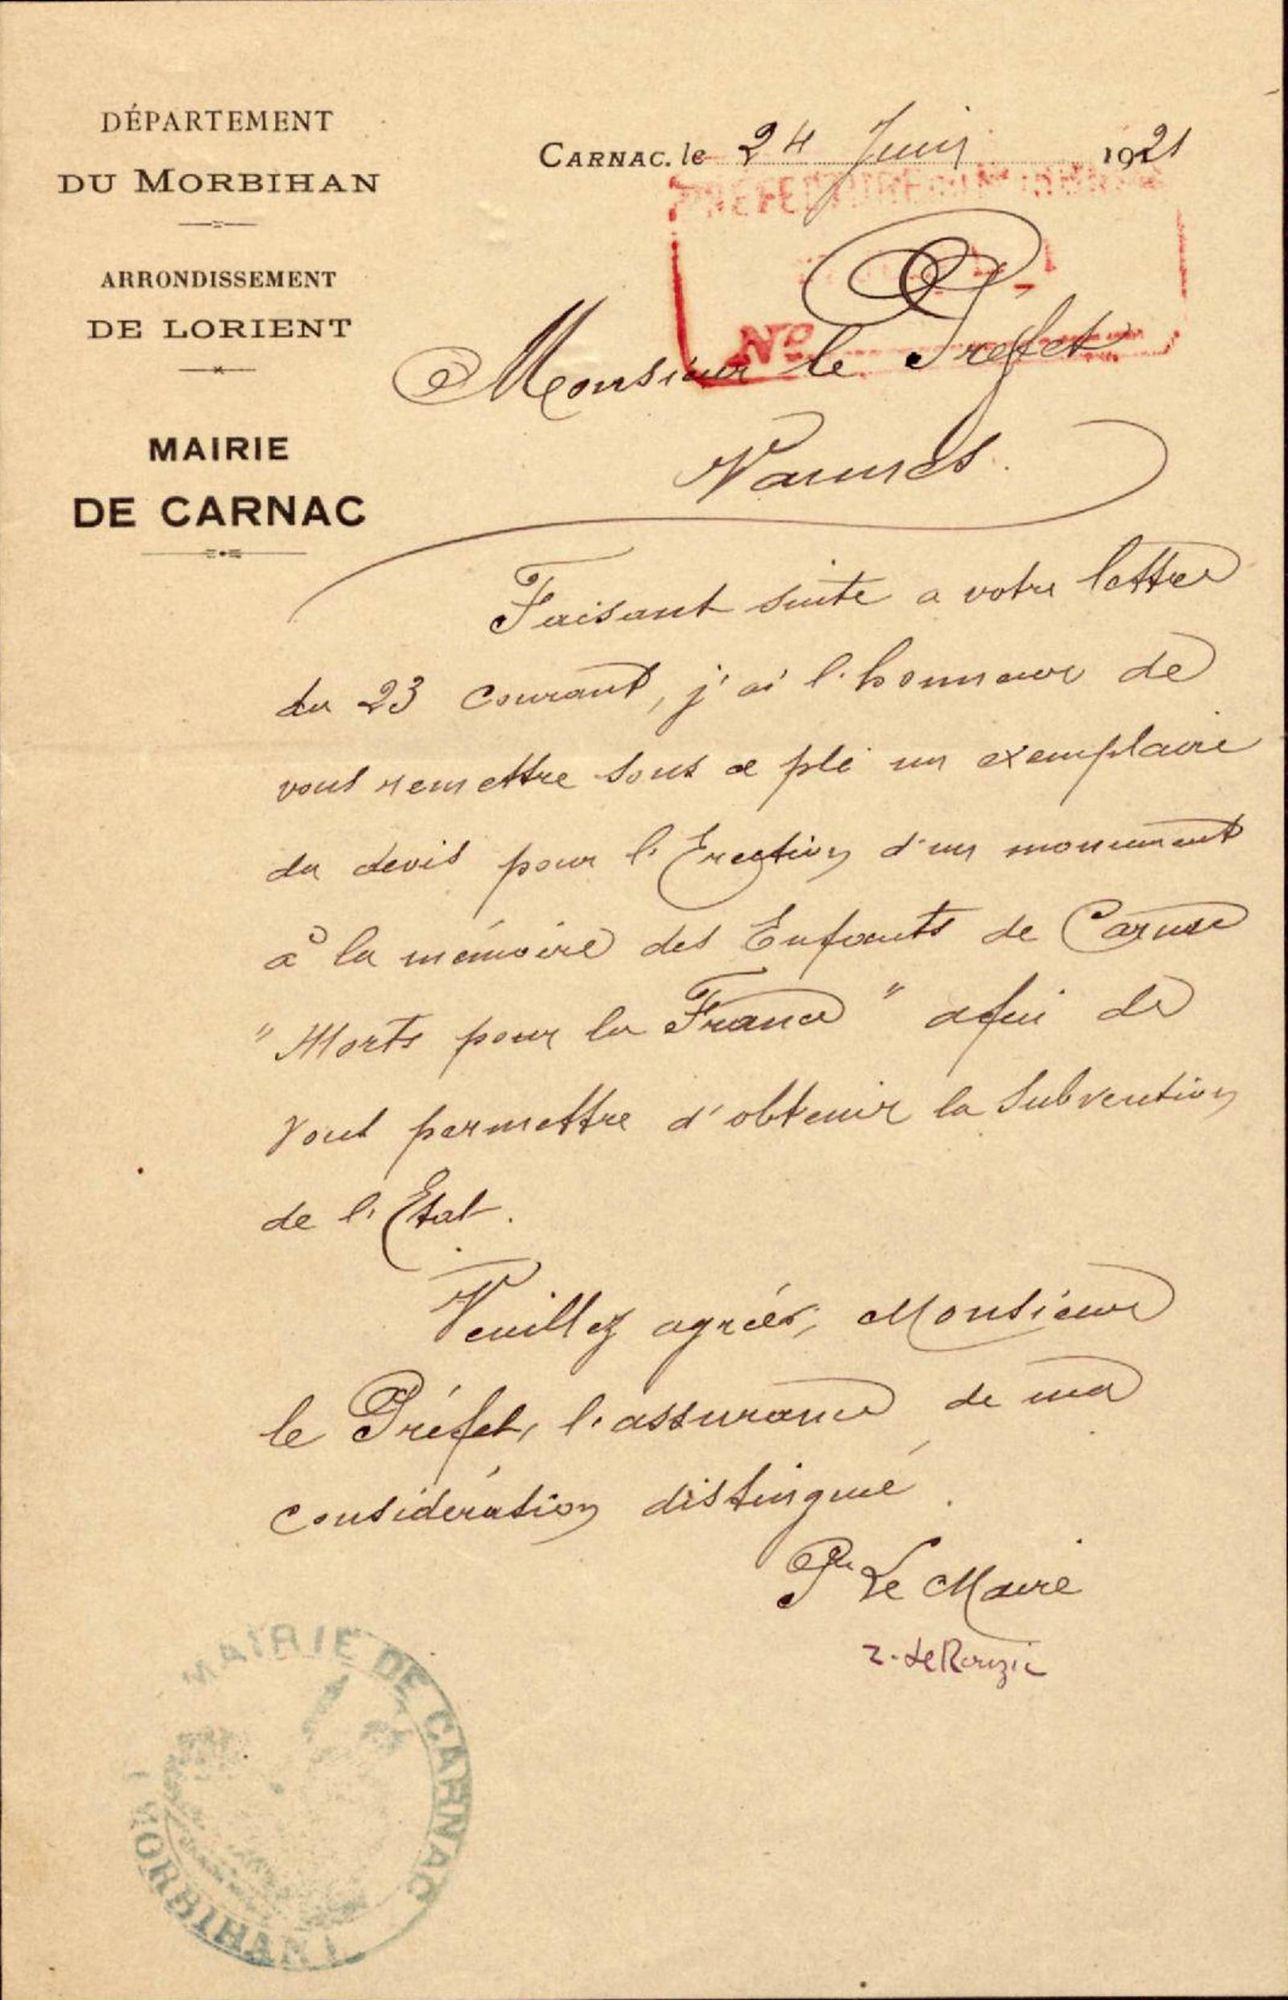 DÉPARTEMENT
DU MORBIHAN
ARRONDISSEMENT
DE LORIENT
MAIRIE
DE CARNAC
CARNAC. le 24 Juin 1921
PRÉFECTURE DU MORBIHAN
N°
Monsieur le Préfet
Vannes.
Faisant suite a votre lettre
du 23 courant, j'ai l'honneur de
vous remettre sous ce pli un exemplaire
du devis pour l'Erection d'un monument
à la mémoire des Enfants de Carnac
"Morts pour la France" afin de
vous permettre d'obtenir la Subvention
de l'Etat.
Veuillez agréer, Monsieur
le Préfet, l'assurance de ma
considération distingué.
Pr Le Maire
Z. Le Rouzic
MAIRIE DE CARNAC
MORBIHAN